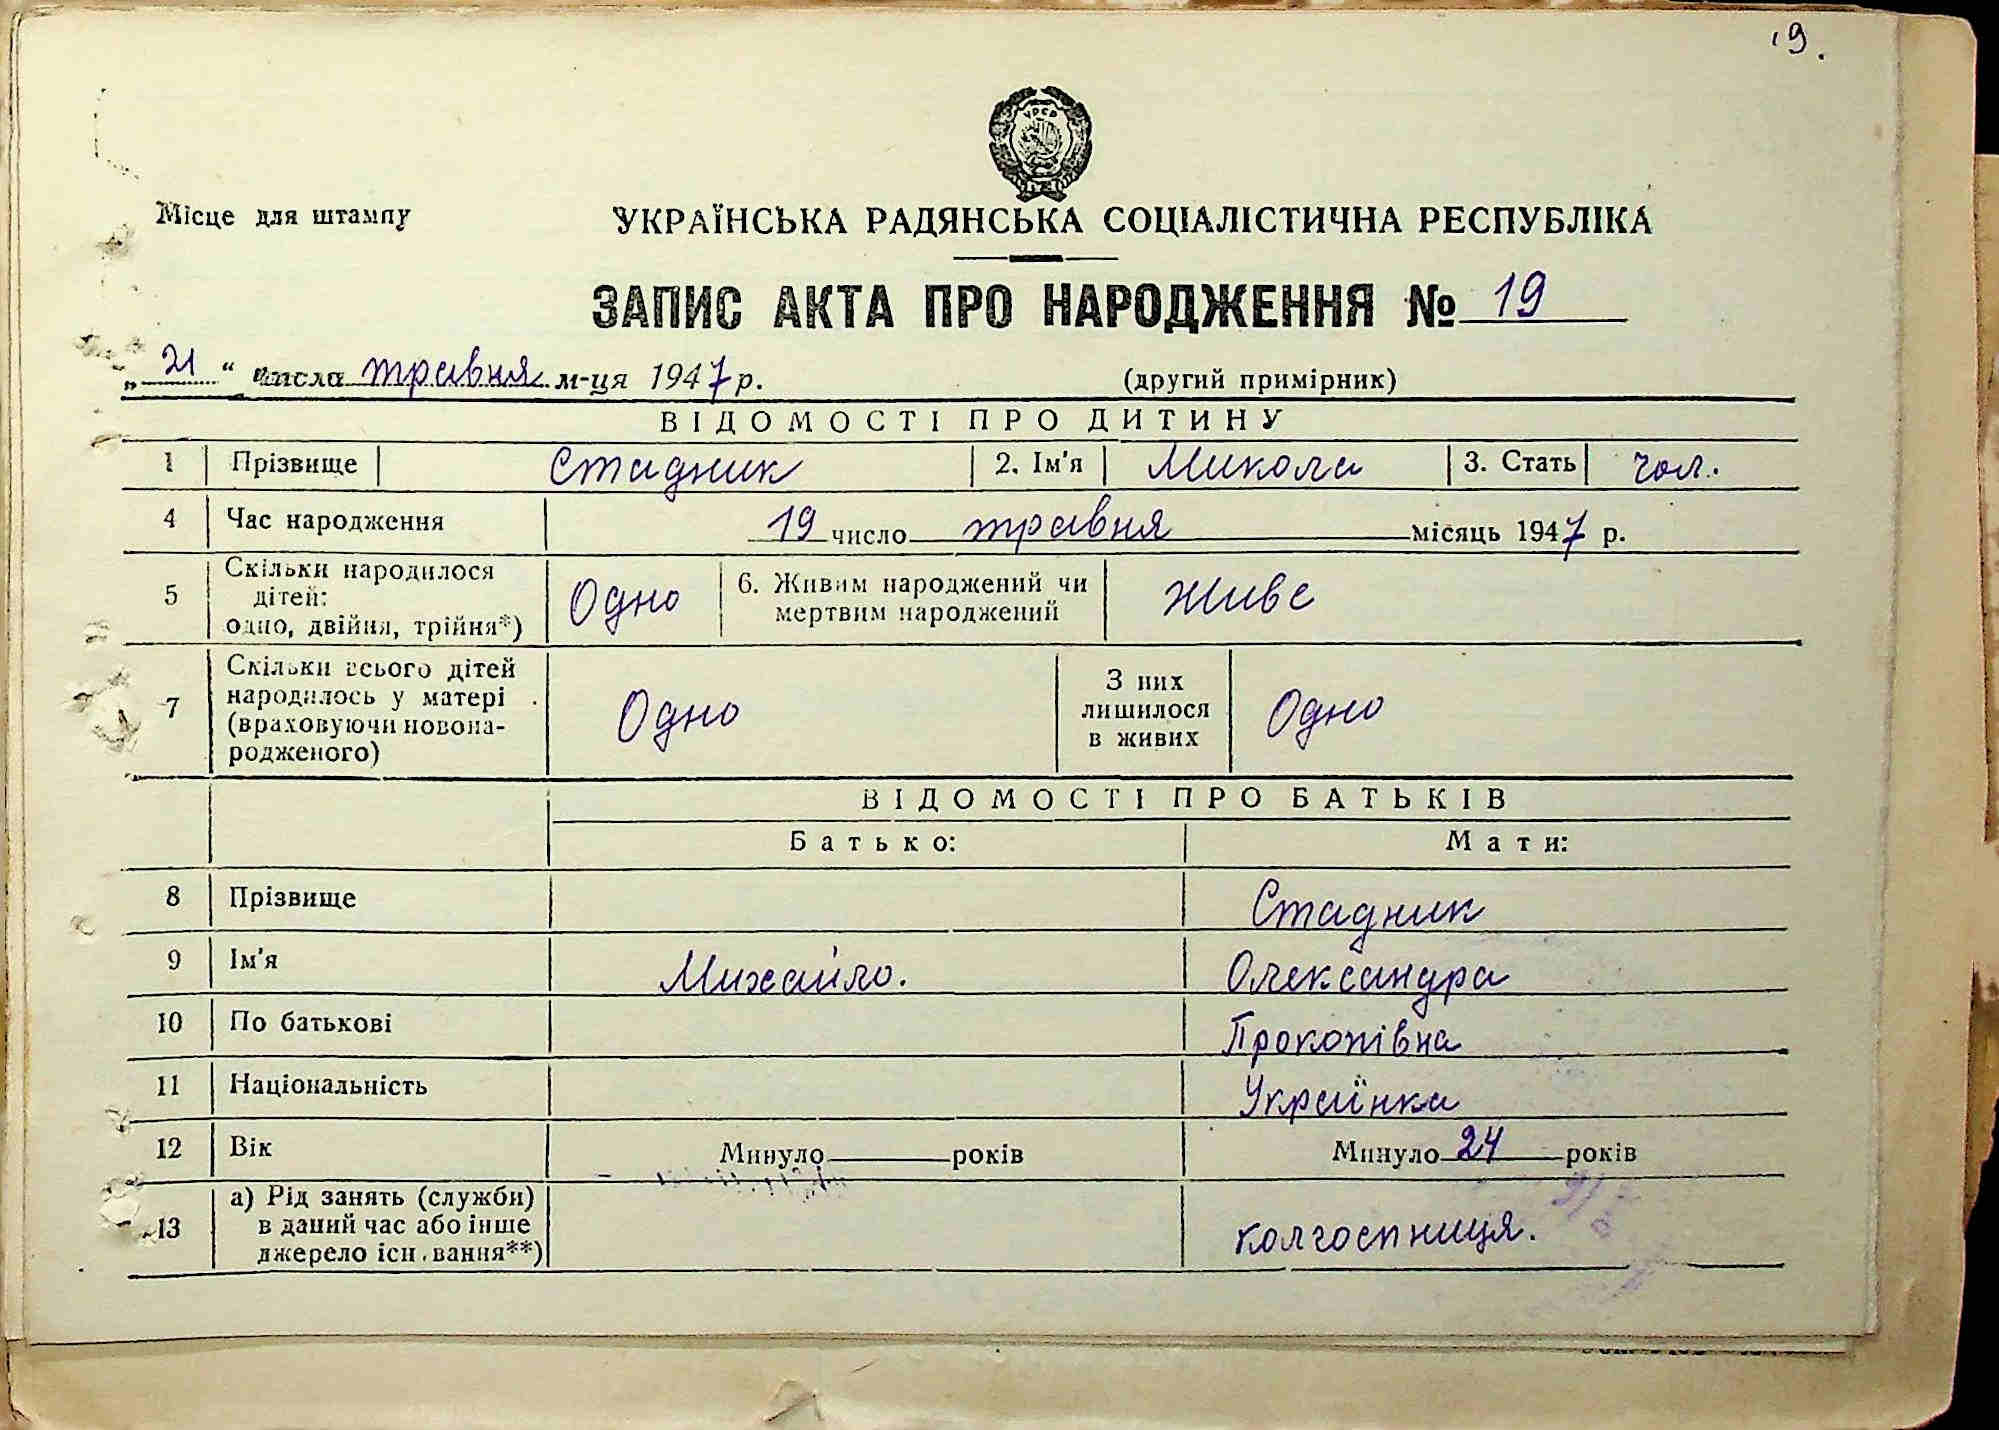 19.
УРСР
Місце для штампу
УКРАЇНСЬКА РАДЯНСЬКА СОЦІАЛІСТИЧНА РЕСПУБЛІКА
ЗАПИС АКТА ПРО НАРОДЖЕННЯ № 19
„21“ числа травня м-ця 1947 р. (другий примірник)
ВІДОМОСТІ ПРО ДИТИНУ
1 Прізвище Стадник 2. Ім'я Микола 3. Стать чол.
4 Час народження 19 число травня місяць 1947 р.
5 Скільки народилося дітей: одно, двійня, трійня*) Одно 6. Живим народжений чи мертвим народжений живе
7 Скільки всього дітей народилось у матері (враховуючи новонародженого) Одно З них лишилося в живих Одно
ВІДОМОСТІ ПРО БАТЬКІВ
Батько: Мати:
8 Прізвище Стадник
9 Ім'я Михайло. Олександра
10 По батькові Прокопівна
11 Національність Українка
12 Вік Минуло років Минуло 24 років
13 а) Рід занять (служби) в даний час або інше джерело існування**) колгоспниця.